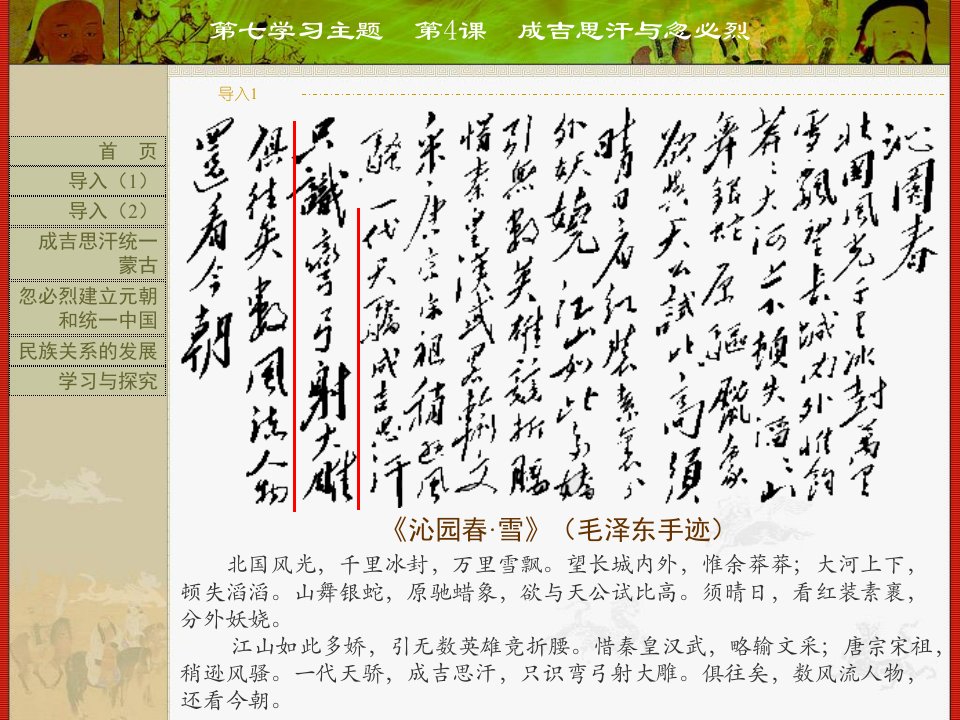 第七学习主题 第4课 成吉思汗与忽必烈
导入1
首 页
导入（1）
导入（2）
成吉思汗统一
蒙古
忽必烈建立元朝
和统一中国
民族关系的发展
学习与探究
沁园春
北国风光千里冰封万里
雪飘望长城内外惟余
莽々大河上下顿失滔々山
舞银蛇原驱腊象
欲与天公试比高须
晴日看红装素裹分
外妖娆江山如此多娇
引无数英雄竞折腰
惜秦皇汉武略输文
采唐宗宋祖稍逊风
骚一代天骄成吉思汗
只识弯弓射大雕
俱往矣数风流人物
还看今朝
《沁园春·雪》（毛泽东手迹）
北国风光，千里冰封，万里雪飘。望长城内外，惟余莽莽；大河上下，
顿失滔滔。山舞银蛇，原驰蜡象，欲与天公试比高。须晴日，看红装素裹，
分外妖娆。
江山如此多娇，引无数英雄竞折腰。惜秦皇汉武，略输文采；唐宗宋祖，
稍逊风骚。一代天骄，成吉思汗，只识弯弓射大雕。俱往矣，数风流人物，
还看今朝。